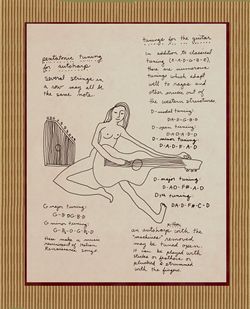 pentatonic tuning
for autoharp
Several strings in
a row may all be
the same note.
tunings for the guitar
In addition to classical
tuning (E-A-D-G-B-E),
there are numerous
tunings which adapt
well to ragas and
other music out of
the western structures.
D-modal tuning:
D-A-D-G-B-D
D-open tuning:
D-A-D-A-D-D
D-minor tuning:
D-A-D-F-A-D
D-major tuning:
D-A-D-F#-A-D
tuning:
D-A-D-F#-C-D
G-major tuning:
G-B-D-G-B-D
G-minor tuning:
these make a music
reminiscent of Italian
Renaissance songs
an autoharp with the
"machines" removed
may be tuned open.
it can be played with
sticks or feathers or
plucked & strummed
with the fingers